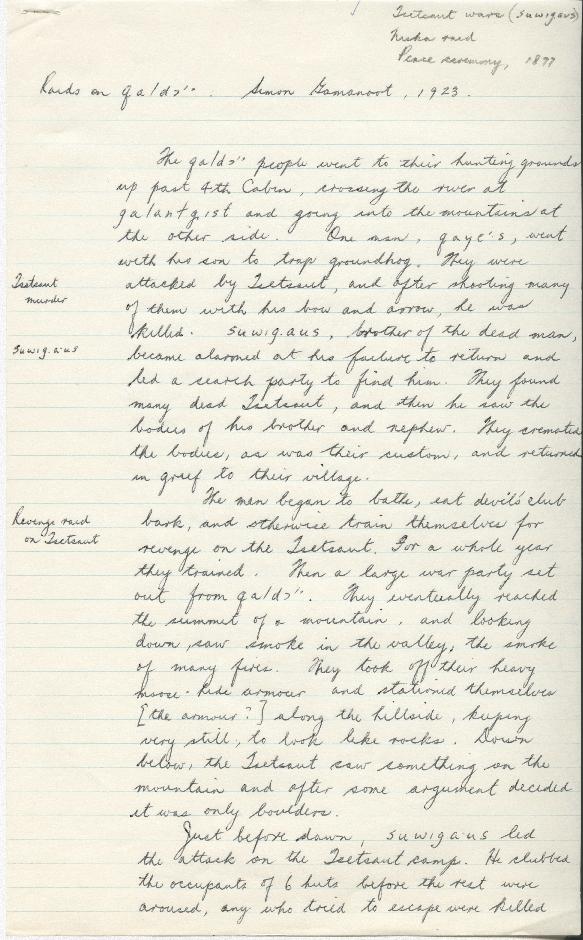 Tsetsaut wars (suwigaus)
Niska raid
Peace ceremony, 1897
Raids on qaldɔ''. Simon Gamanoot, 1923.
The qaldɔ'' people went to their hunting grounds
up past 4th Cabin, crossing the river at
galantgist and going into the mountains at
the other side. One man, gaye's, went
with his son to trap groundhog. They were
Tsetsaut
murder
attacked by Tsetsaut, and after shooting many
of them with his bow and arrow, he was
killed. suwig.aus, brother of the dead man,
suwig.aus
became alarmed at his failure to return and
led a search party to find him. They found
many dead Tsetsaut, and then he saw the
bodies of his brother and nephew. They cremated
the bodies, as was their custom, and returned
in grief to their village.
The men began to bathe, eat devil's club
Revenge raid
on Tsetsaut
bark, and otherwise train themselves for
revenge on the Tsetsaut. For a whole year
they trained. Then a large war party set
out from qaldɔ''. They eventually reached
the summit of a mountain, and looking
down, saw smoke in the valley, the smoke
of many fires. They took off their heavy
moose-hide armour and stationed themselves
[the armour?] along the hillside, keeping
very still, to look like rocks. Down
below, the Tsetsaut saw something on the
mountain and after some argument decided
it was only boulders.
Just before dawn, suwigaus led
the attack on the Tsetsaut camp. He clubbed
the occupants of 6 huts before the rest were
aroused, any who tried to escape were killed